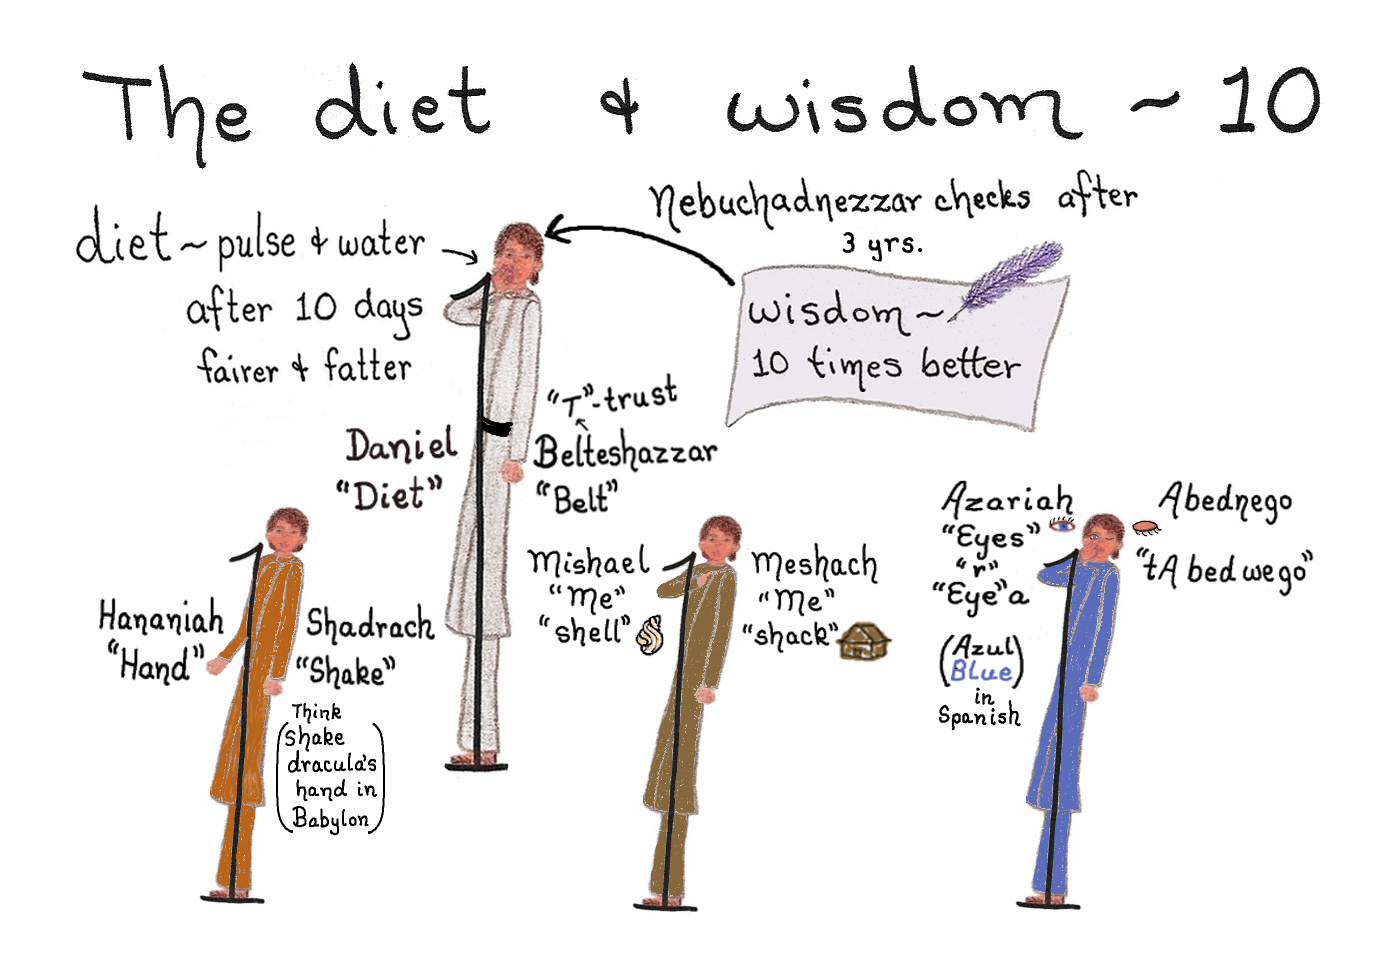 The diet & wisdom ~ 10
Nebuchadnezzar checks after
3 yrs.
diet ~ pulse & water
after 10 days
fairer & fatter
wisdom ~
10 times better
Daniel
"Diet"
"T"-trust
Belteshazzar
"Belt"
Hananiah
"Hand"
Shadrach
"Shake"
Think
Shake
dracula's
hand in
Babylon
Mishael
"Me"
"shell"
Meshach
"Me"
"shack"
Azariah
"Eyes"
"r"
"Eye"a
(Azul)
(Blue)
in
Spanish
Abednego
"tA bed we go"